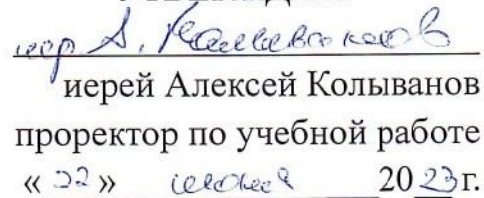 иер. А.
иерей Алексей Колыванов
проректор по учебной работе
« 22 » июня 2023 г.